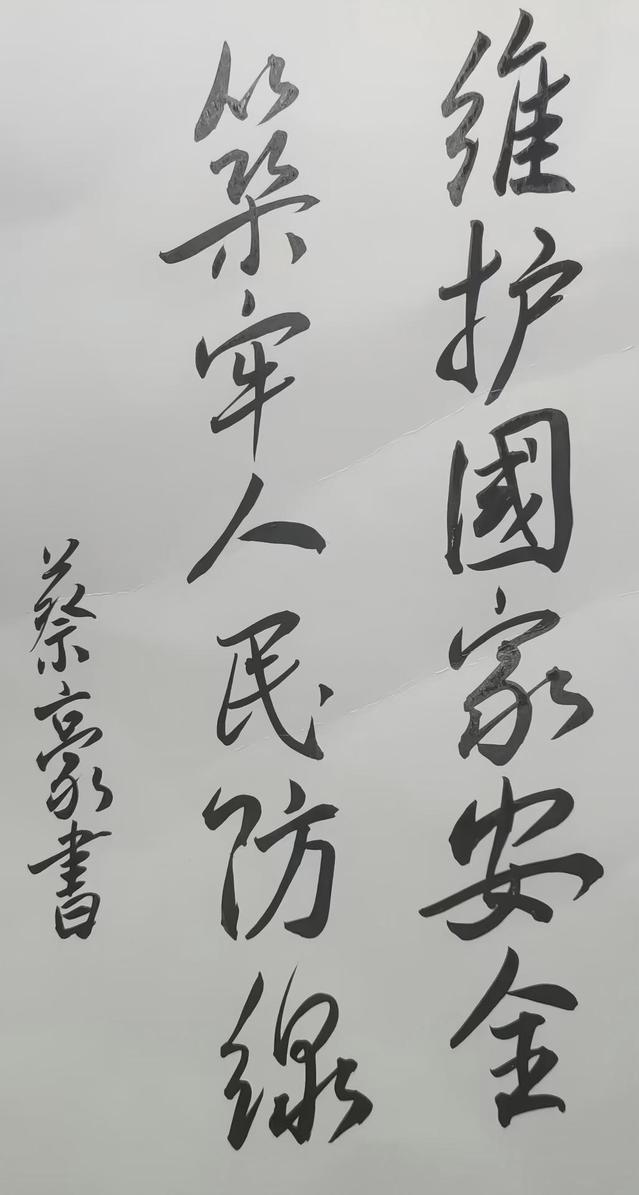 维护國家安全
築牢人民防線
蔡豪書